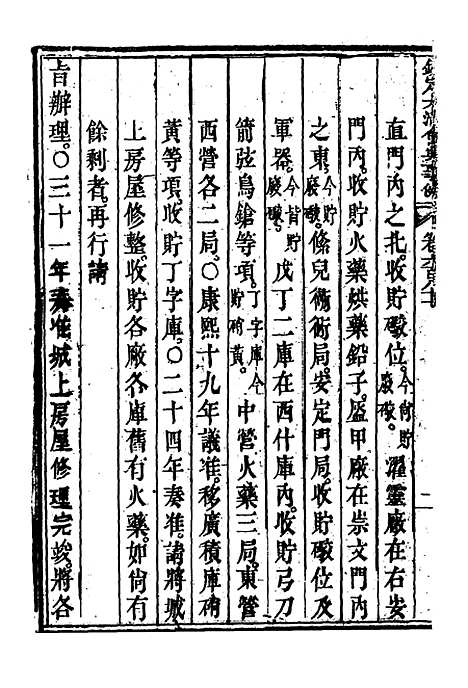 直門內之北收貯礮位今尚貯廠礮濯靈廠在右安
門內收貯火藥烘藥鉛子盔甲廠在崇文門內
之東今貯廠礮條兒衚衕局安定門局收貯礮位及
軍器今皆貯廠礮戊丁二庫在西什庫內收貯弓刀
箭弦鳥鎗等項丁字庫今貯硝黃中營火藥三局東管
西營各二局○康熙十九年議准移廣積庫硝
黃等項收貯丁字庫○二十四年奏准請將城
上房屋修整收貯各廠各庫舊有火藥如尚有
餘剩者再行請
旨辦理○三十一年奏准城上房屋修理完竣將各